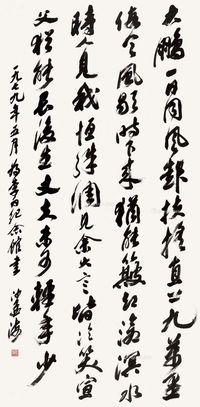 大鵬一日同風起扶搖直上九萬里
假令風歇時下來猶能簸却滄溟水
時人見我恒殊調見余大言皆冷笑宣
父猶能畏後生丈夫未可輕年少
一九七九年五月為李白紀念館書 沙孟海